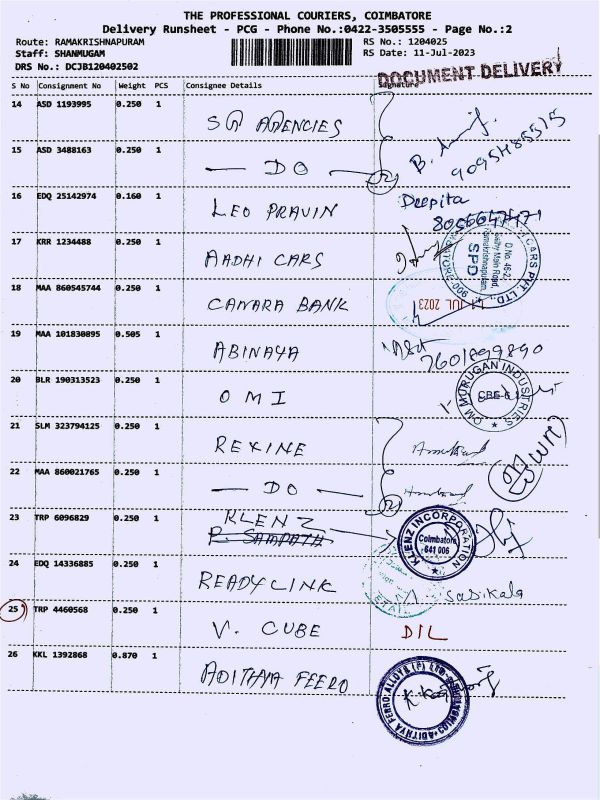 THE PROFESSIONAL COURIERS, COIMBATORE
Delivery Runsheet - PCG - Phone No.:0422-3505555 - Page No.:2
Route: RAMAKRISHNAPURAM
RS No.: 1204025
Staff: SHANMUGAM
RS Date: 11-Jul-2023
DRS No.: DCJB120402502
DOCUMENT DELIVERY
S No Consignment No Weight PCS Consignee Details Signature
14 ASD 1193995 0.250 1 SG AGENCIES
B.
9095485515
15 ASD 3488163 0.250 1 — DO — 2
16 EDQ 25142974 0.160 1 LEO PRAVIN Deepita
8056647471
17 KRR 1234488 0.250 1 AADHI CARS
CARS PVT LTD.,
D.No. 46-2
Sathy Main Road,
Ramakrishnapuram,
SPD
18 MAA 860545744 0.250 1 CANARA BANK
11 JUL 2023
19 MAA 101830895 0.505 1 ABINAYA
7601099890
20 BLR 190313523 0.250 1 OMI
OM MURUGAN INDUSTRIES
CBE-6
21 SLM 323794125 0.250 1 REXINE
22 MAA 860021765 0.250 1 — DO — 2
23 TRP 6096829 0.250 1 KLENZ
P. SAMPATH
KLENZ INCORPORATION
Coimbatore
641 006
24 EDQ 14336885 0.250 1 READYLINK Sasikala
25 TRP 4460568 0.250 1 V. CUBE DIL
26 KKL 1392868 0.870 1 ADITHYA FEERO
ADITHYA FERRO ALLOYS (P) LTD